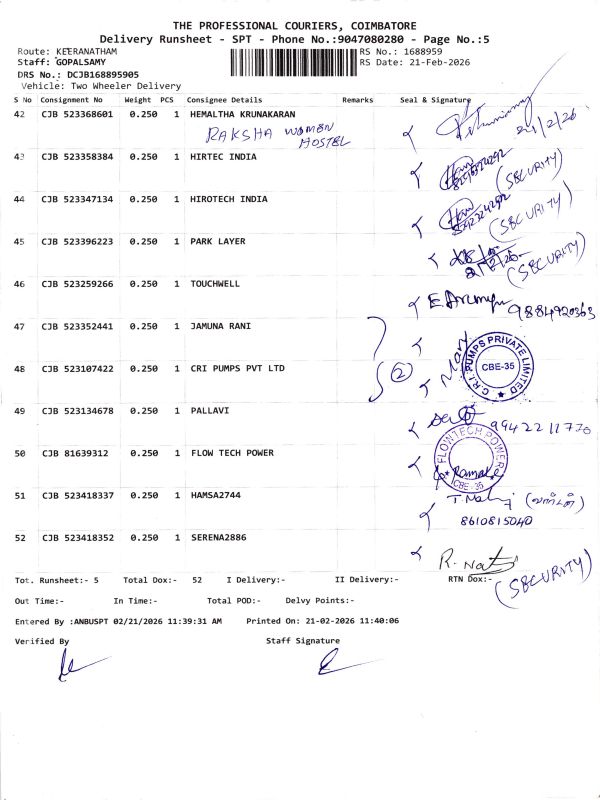 THE PROFESSIONAL COURIERS, COIMBATORE
Delivery Runsheet - SPT - Phone No.:9047080280 - Page No.:5
Route: KEERANATHAM
RS No.: 1688959
Staff: GOPALSAMY
RS Date: 21-Feb-2026
DRS No.: DCJB168895905
Vehicle: Two Wheeler Delivery
S No Consignment No Weight PCS Consignee Details Remarks Seal & Signature
42 CJB 523368601 0.250 1 HEMALTHA KRUNAKARAN
RAKSHA WOMEN HOSTEL
21/2/26
43 CJB 523358384 0.250 1 HIRTEC INDIA
(SECURITY)
44 CJB 523347134 0.250 1 HIROTECH INDIA
(SECURITY)
45 CJB 523396223 0.250 1 PARK LAYER
(SECURITY)
46 CJB 523259266 0.250 1 TOUCHWELL
9884920363
47 CJB 523352441 0.250 1 JAMUNA RANI
48 CJB 523107422 0.250 1 CRI PUMPS PVT LTD
2
C.R.I. PUMPS PRIVATE LIMITED
CBE-35
49 CJB 523134678 0.250 1 PALLAVI
9942211770
50 CJB 81639312 0.250 1 FLOW TECH POWER
FLOWTECH POWER
CBE-35
51 CJB 523418337 0.250 1 HAMSA2744
8610815040
52 CJB 523418352 0.250 1 SERENA2886
(SECURITY)
Tot. Runsheet:- 5 Total Dox:- 52 I Delivery:- II Delivery:- RTN Dox:-
Out Time:- In Time:- Total POD:- Delvy Points:-
Entered By :ANBUSPT 02/21/2026 11:39:31 AM Printed On: 21-02-2026 11:40:06
Verified By Staff Signature